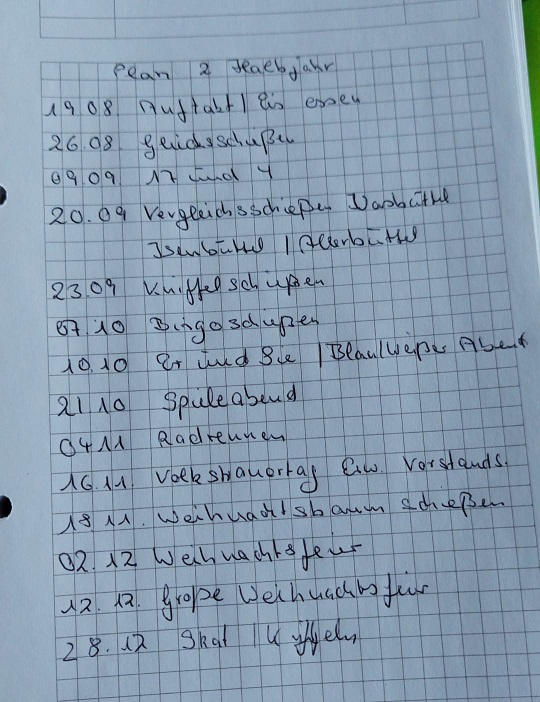 Plan 2 Halbjahr
19.08 Auftakt / Eis essen
26.08 Glücksschießen
09.09 17 und 4
20.09 Vergleichsschießen Wasbüttel
Isenbüttel / Allerbüttel
23.09 Kniffelschießen
07.10 Bingoschießen
10.10 Er und Sie / Blau/Weißer Abend
21.10 Spieleabend
04.11 Radrennen
16.11 Volkstrauertag Erw. Vorstands.
18.11. Weihnachtsbaum schießen
02.12 Weihnachtsfeier
12.12. Große Weihnachtsfeier
28.12 Skat / Kniffeln